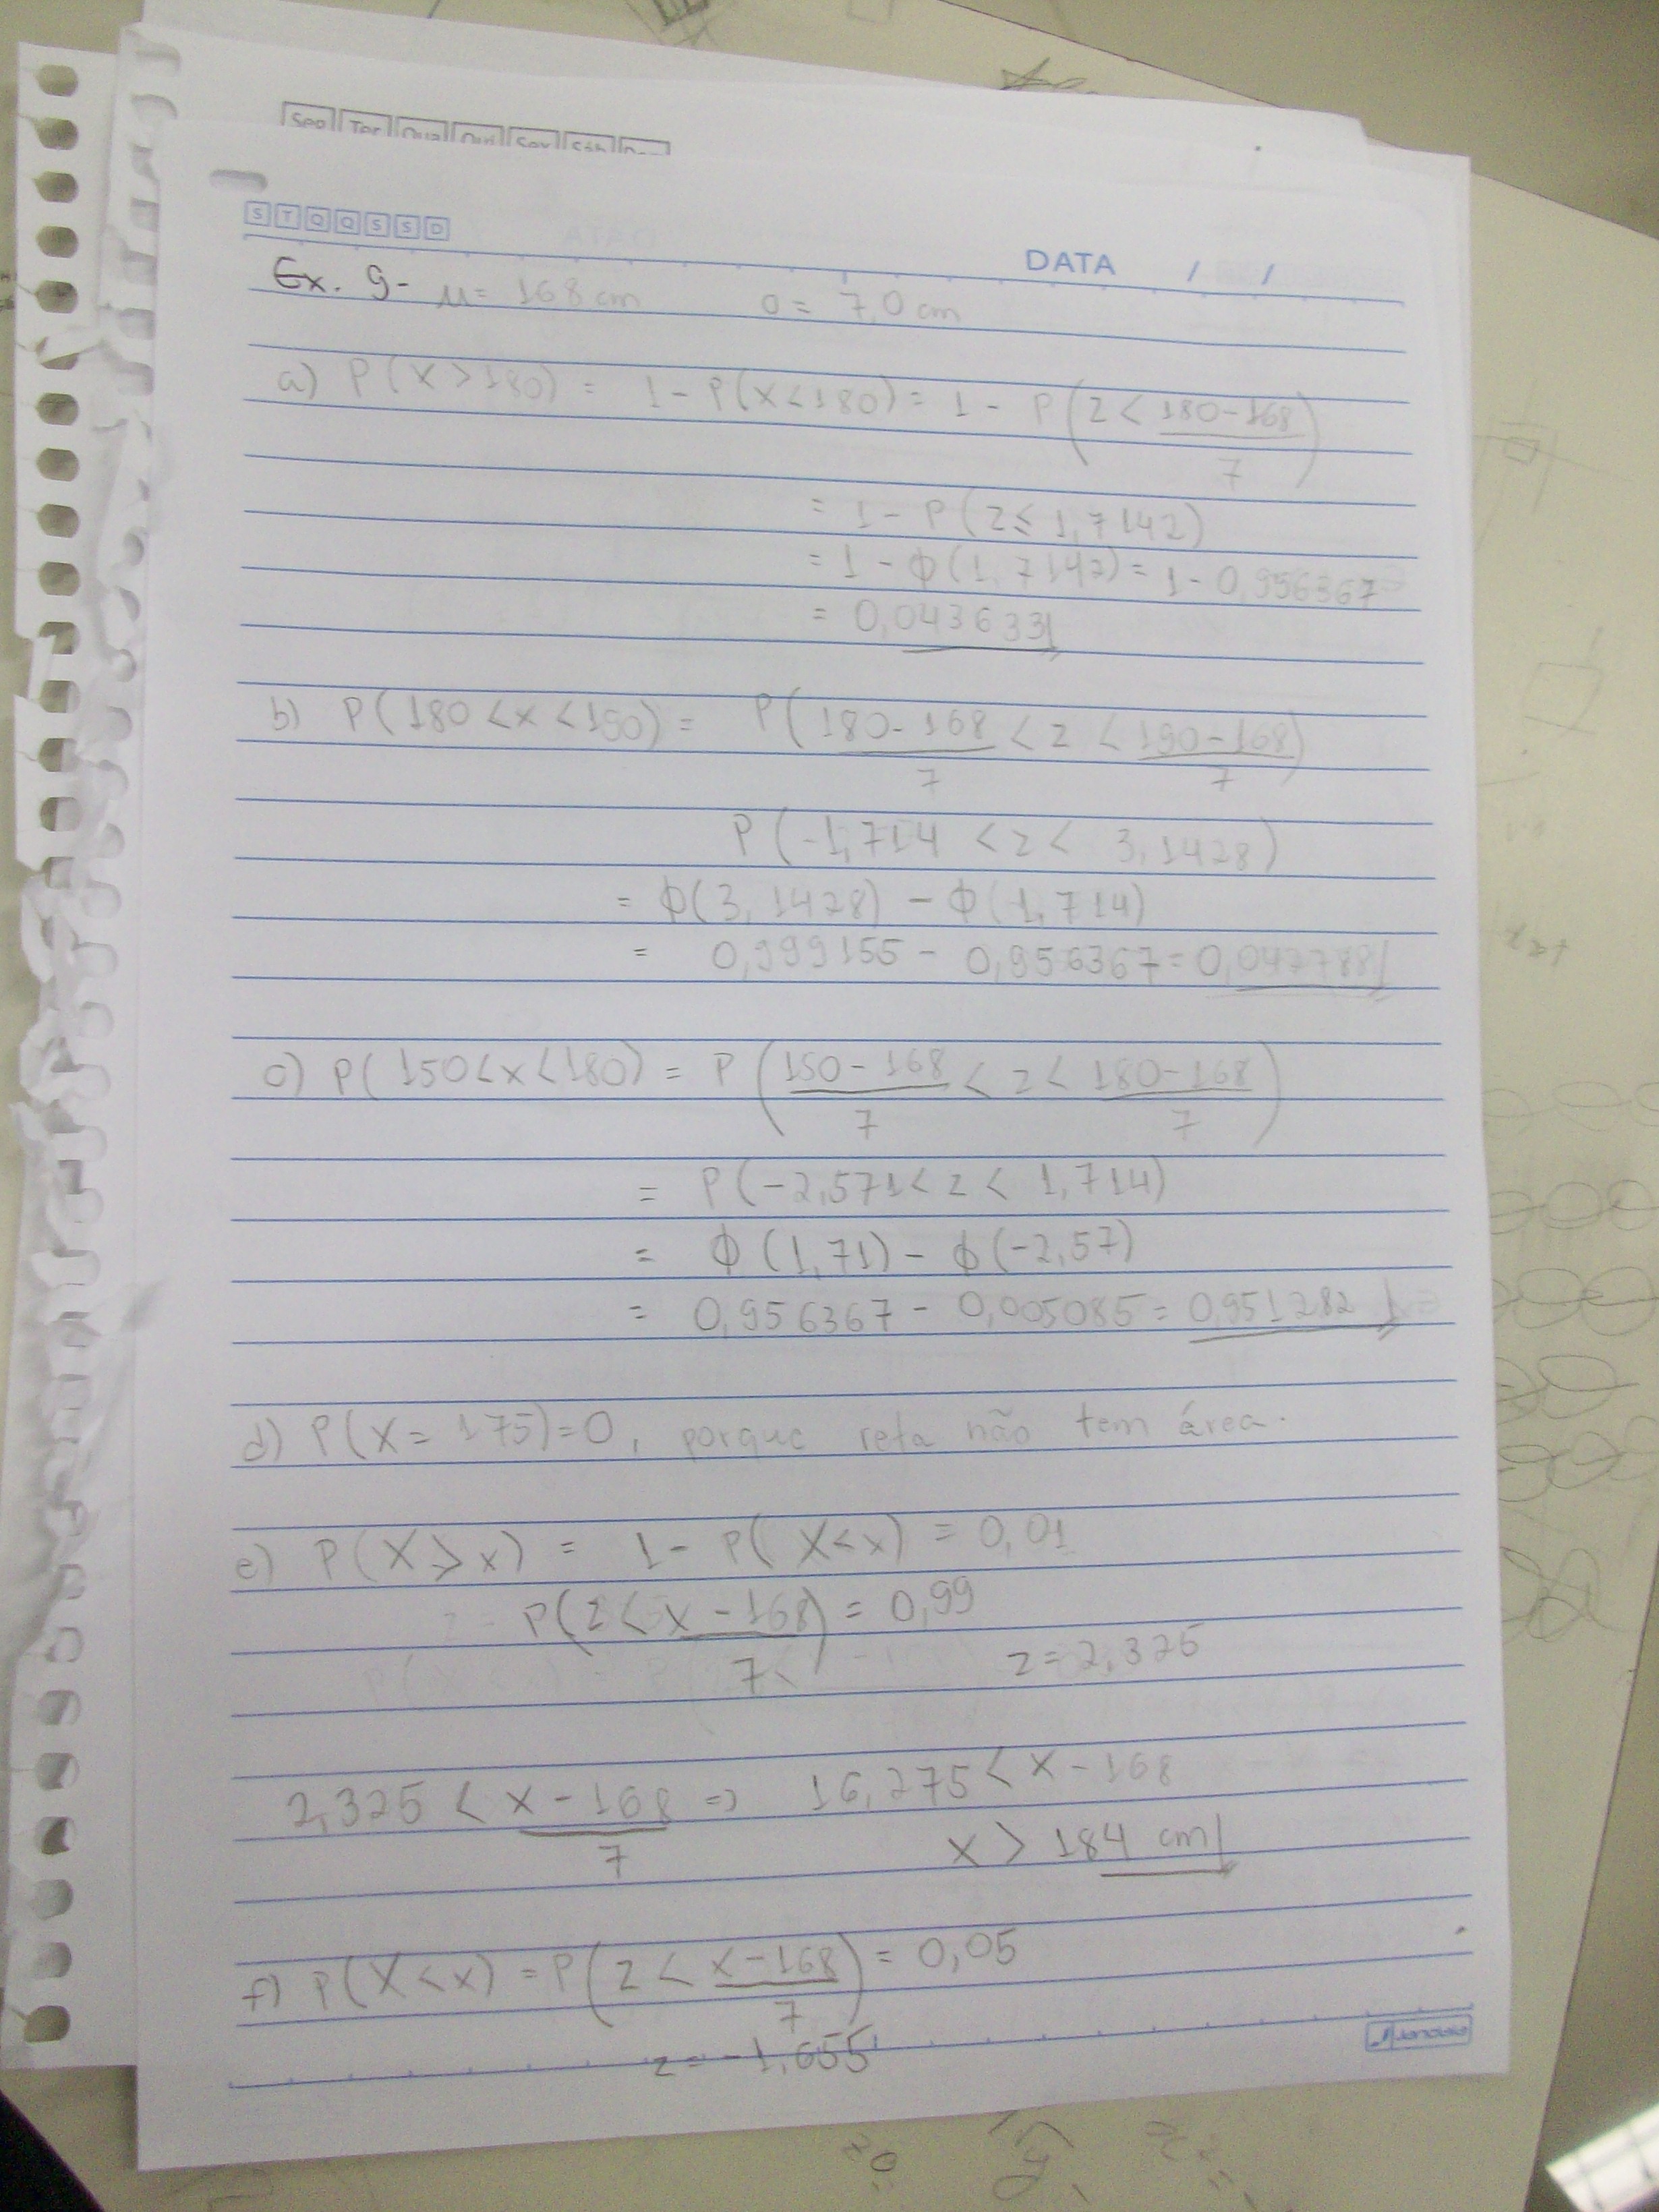 Seg Ter Qua Qui Sex Sáb
S T Q Q S S D
DATA / /
Ex. 9- μ= 168 cm σ= 7,0 cm
a) P(X>180) = 1- P(X<180) = 1 - P(Z < 180-168
7)
= 1- P(Z≤ 1,7142)
= 1 - ϕ(1,7142) = 1- 0,956367
= 0,043633
b) P(180 <x <190) = P(180-168 < z < 190-168)
7 7
P(-1,714 < z < 3,1428)
= ϕ(3,1428) - ϕ(1,714)
= 0,999155 - 0,956367 = 0,042788
c) P(150<x<180) = P(150-168 < z < 180-168)
7 7
= P(-2,571< z < 1,714)
= ϕ(1,71) - ϕ(-2,57)
= 0,956367 - 0,005085 = 0,951282
d) P(X= 175)=0, porque reta não tem área.
e) P(X > x) = 1- P(X<x) = 0,01
P(Z< x - 168) = 0,99
7
z= 2,325
2,325 < x - 168 => 16,275 < x - 168
7
x > 184 cm
f) P(X<x) = P(Z < x-168) = 0,05
7
z = -1,655
jandaia